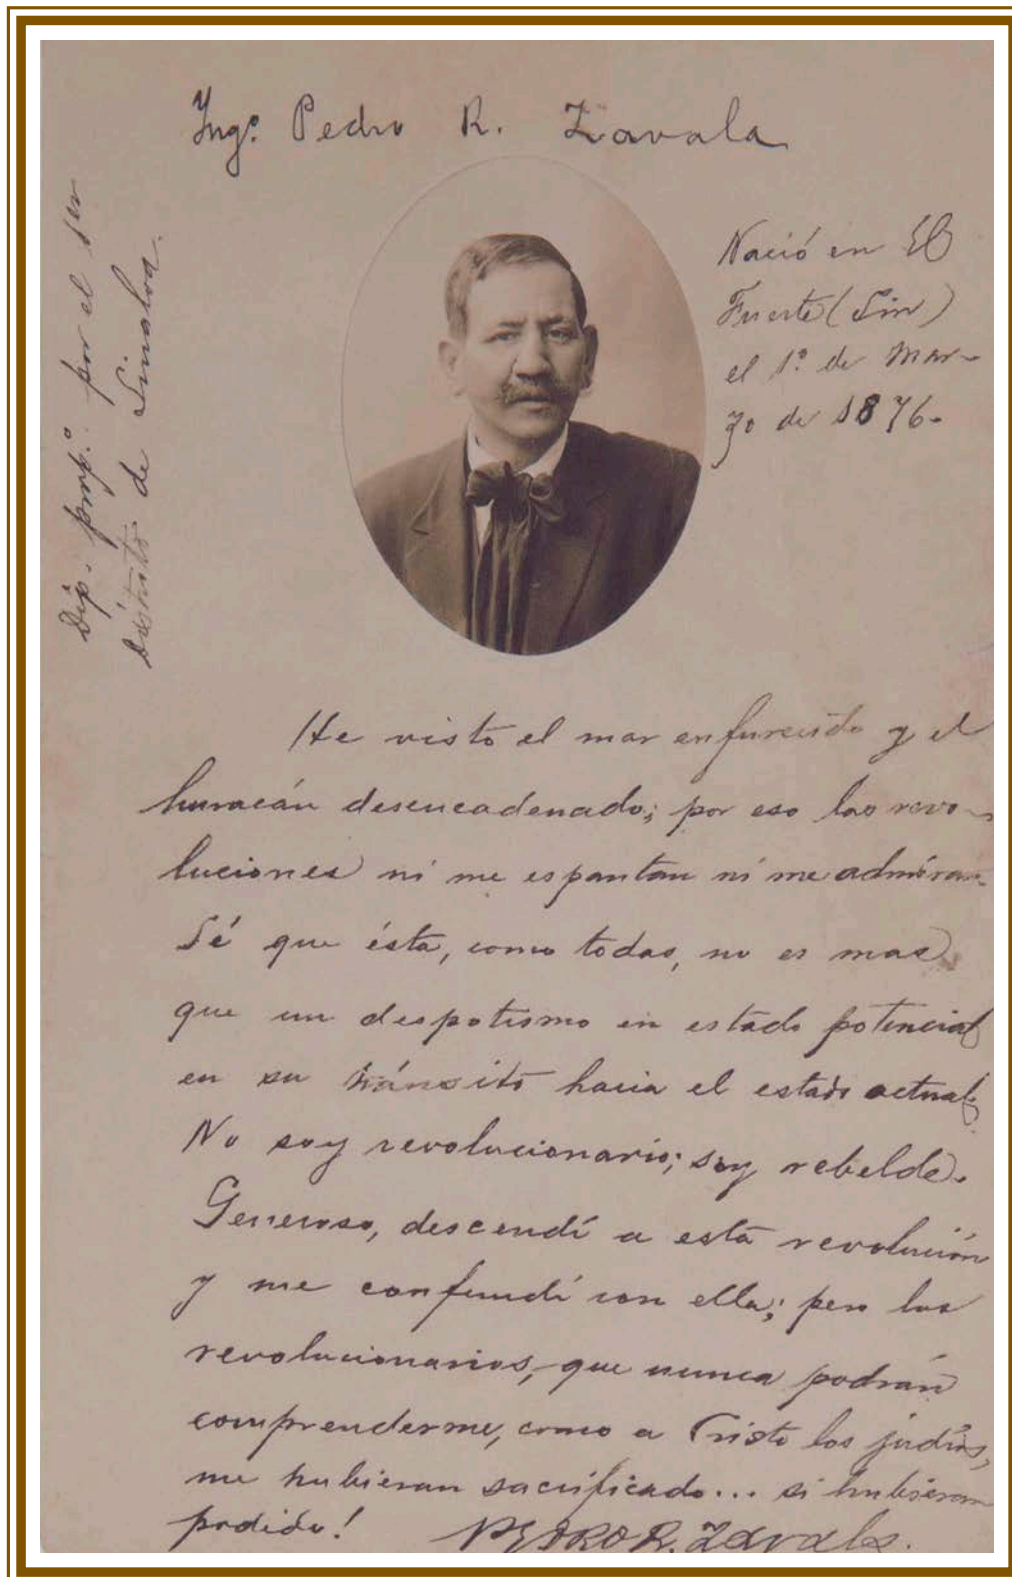 Ing.º Pedro R. Zavala
Dip. prop.º por el 1er
Distrito de Sinaloa.
Nació en El
Fuerte (Sin)
el 1º de Mar-
zo de 1876.
He visto el mar enfurecido y el
huracán desencadenado; por eso las revo-
luciones ni me espantan ni me admiran.
Sé que ésta, como todas, no es mas
que un despotismo en estado potencial
en su tránsito hacia el estado actual.
No soy revolucionario; soy rebelde.
Generoso, descendí a esta revolución
y me confundí con ella; pero los
revolucionarios, que nunca podrán
comprenderme, como a Cristo los judíos,
me hubieran sacrificado... si hubieran
podido! PEDRO R. Zavala.